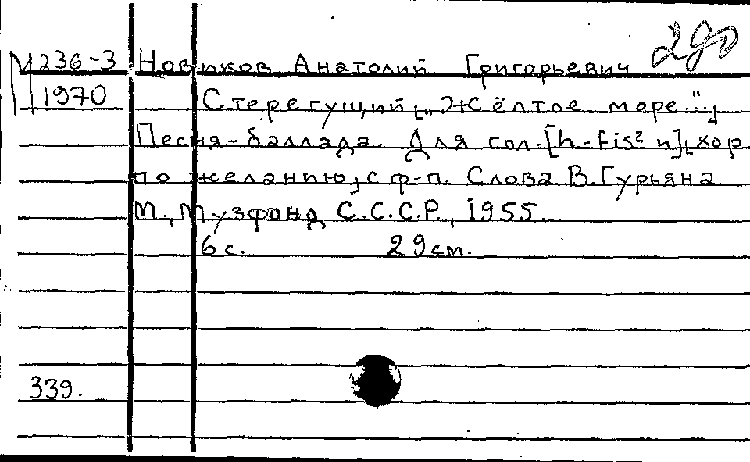 290
М 236-3 Новиков Анатолий Григорьевич
1970 Стерегущий [„Жёлтое море"];
Песня-баллада. Для гол. [h-fis² и], хор
по желанию, с ф-п. Слова В. Гурьяна
М., Музфонд С.С.С.Р., 1955.
6 с. 29 см.
339.